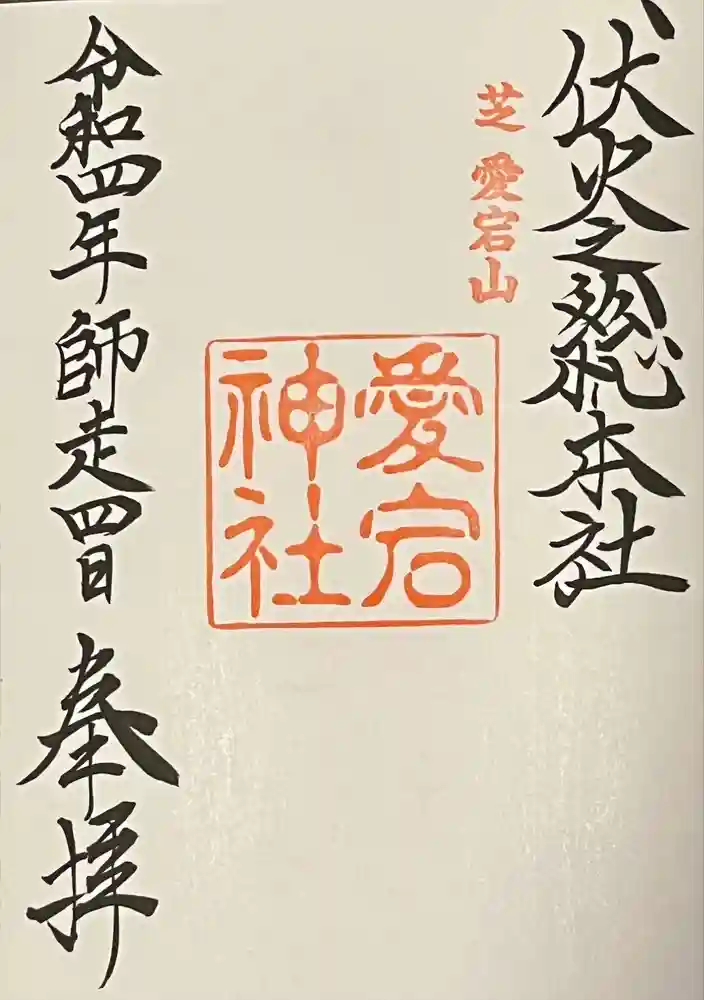 伏火之総本社
芝 愛宕山
愛宕
神社
令和四年師走四日 奉拝